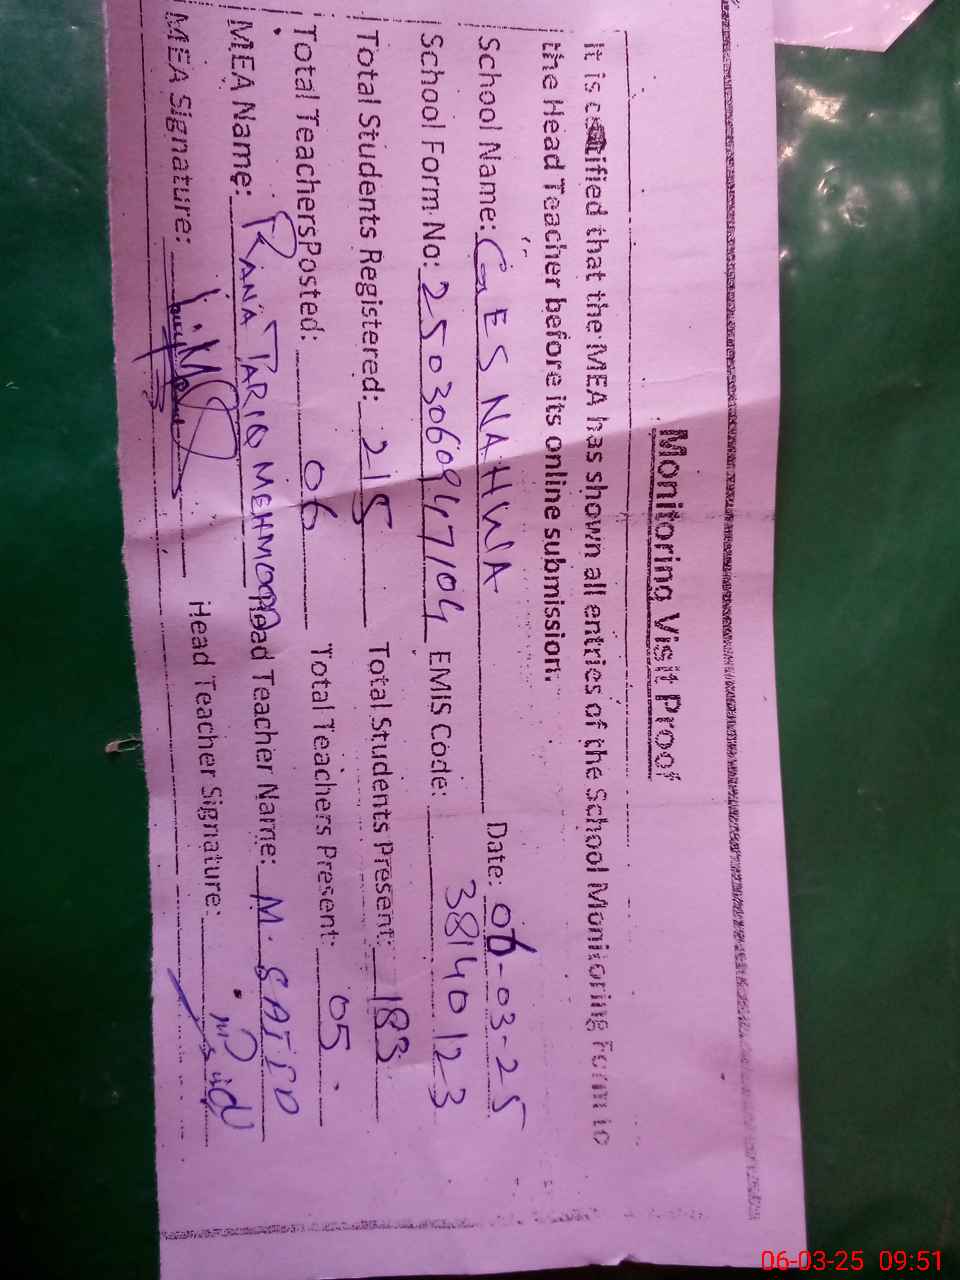 Monitoring Visit Proof
It is certified that the MEA has shown all entries of the School Monitoring Form to
the Head Teacher before its online submission.
School Name: GES NAHWA Date: 06-03-25
School Form No: 2503060947104 EMIS Code: 38140123
Total Students Registered: 215 Total Students Present: 183
Total Teachers Posted: 06 Total Teachers Present: 05
MEA Name: RANA TARIQ MEHMOOD Head Teacher Name: M. SAIID
MEA Signature: Head Teacher Signature:
06-03-25 09:51